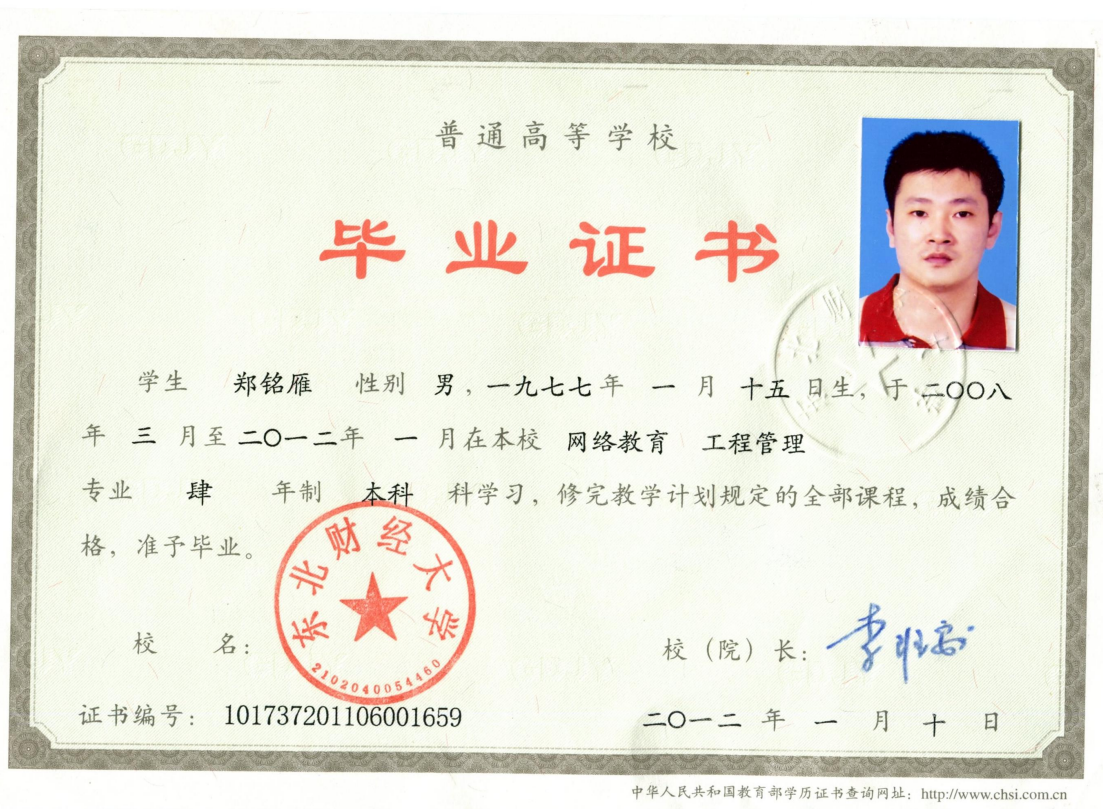 普通高等学校
毕业证书
学生 郑铭雁 性别 男，一九七七年 一 月 十五 日生，于 二〇〇八
年 三 月至 二〇一二年 一 月在本校 网络教育 工程管理
专业 肆 年制 本科 科学习，修完教学计划规定的全部课程，成绩合
格，准予毕业。
东北财经大学
2102040054460
校 名：
校（院）长：
证书编号： 101737201106001659
二〇一二 年 一 月 十 日
中华人民共和国教育部学历证书查询网址：http://www.chsi.com.cn